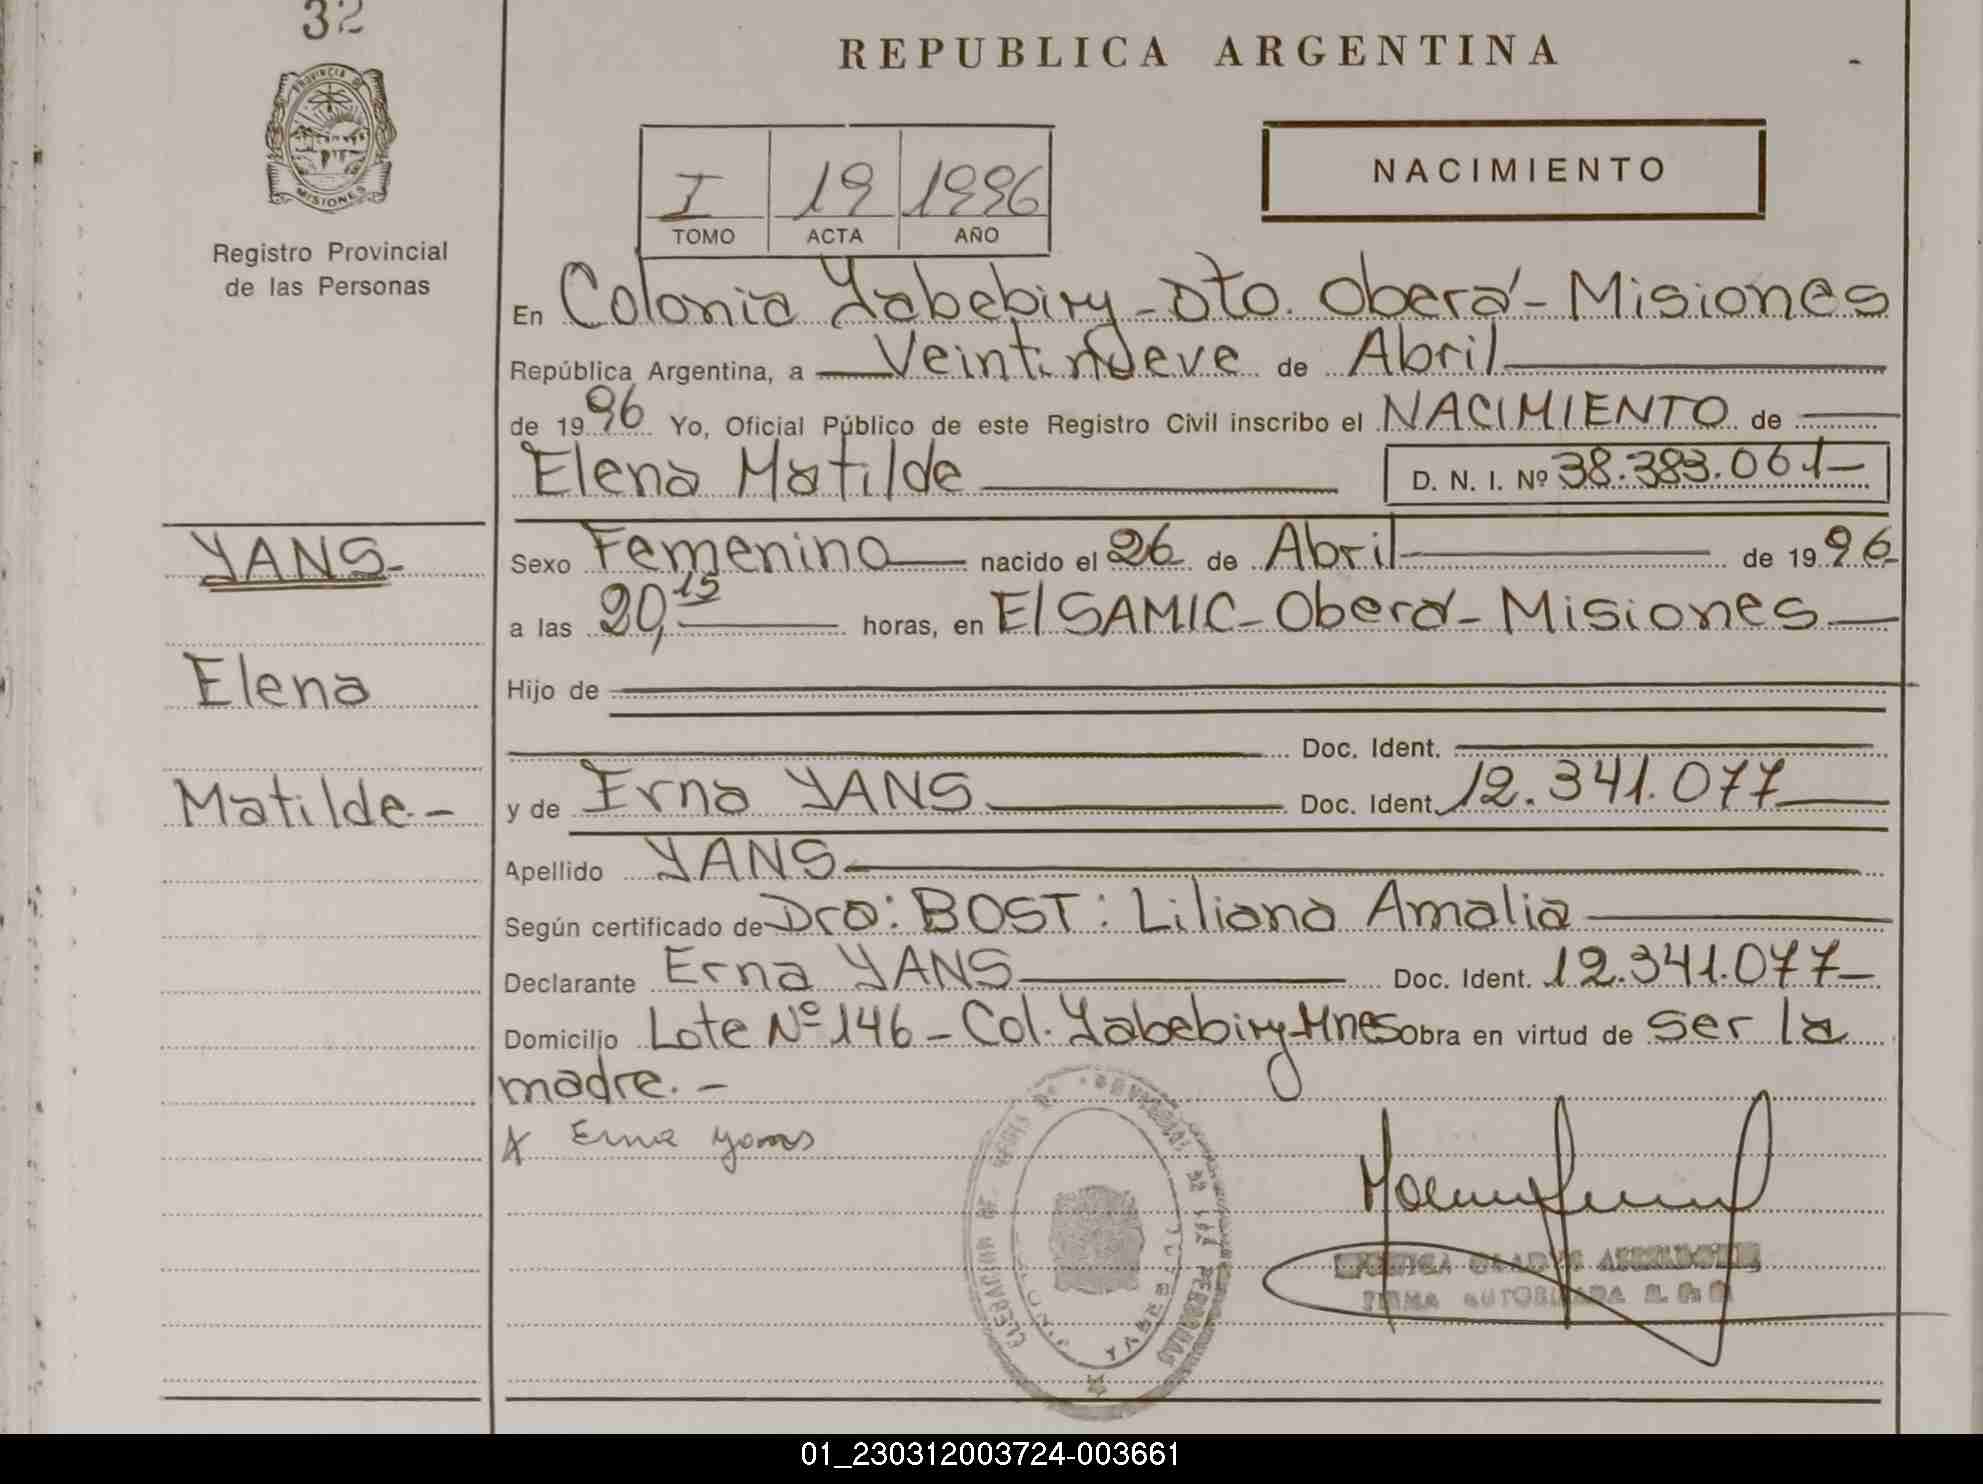 32
REPUBLICA ARGENTINA
PROVINCIA DE
MISIONES
Registro Provincial
de las Personas
NACIMIENTO
I 19 1996
TOMO ACTA AÑO
En Colonia Yabebiry - Dto. Oberá - Misiones
República Argentina, a Veintinueve de Abril
de 1996 Yo, Oficial Público de este Registro Civil inscribo el NACIMIENTO de
Elena Matilde D. N. I. Nº 38.383.061-
YANS-
Elena
Matilde.-
Sexo Femenino nacido el 26 de Abril de 1996
a las 20,15 horas, en El SAMIC - Oberá - Misiones
Hijo de
Doc. Ident.
y de Erna YANS Doc. Ident. 12.341.077
Apellido YANS
Según certificado de Dra: BOST: Liliana Amalia
Declarante Erna YANS Doc. Ident. 12.341.077-
Domicilio Lote Nº 146 - Col. Yabebiry - Mnes Obra en virtud de ser la
madre. -
X Erna yans
DE LAS PERSONAS
COLONIA YABEBIRY
GLADYS
FIRMA AUTORIZADA
01_230312003724-003661